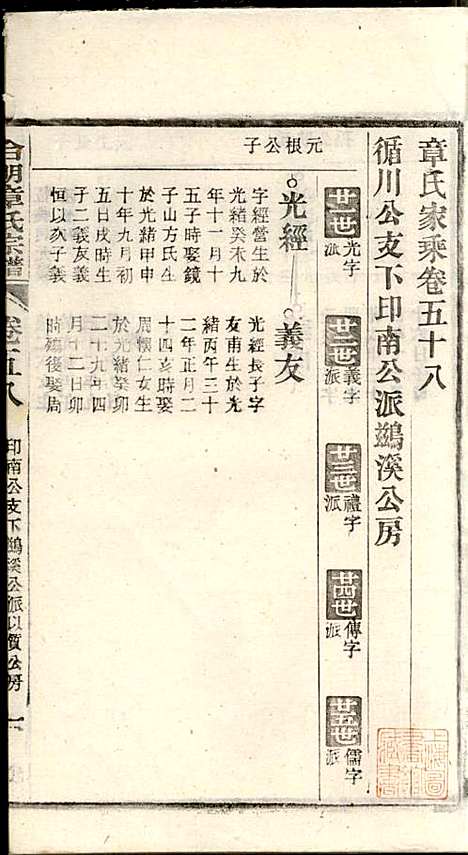 章氏家乘卷五十八
循川公支下印南公派鷀溪公房
廿一世光字派
廿二世義字派
廿三世禮字派
廿四世傳字派
廿五世儒字派
元根公子
光經
字經營生於
光緒癸未九
年十一月十
五子時娶鏡
子山方氏生
於光緒甲申
十年九月初
五日戌時生
子二義友義
恒以亥子義
義友
光經長子字
友甫生於光
緒丙午三十
二年正月二
十四亥時娶
周懷仁女生
於光緒癸卯
二十九年四
月十二日卯
時殤後娶局
章氏宗譜
卷五十八
印南公支下鷀溪公派以質公房
一